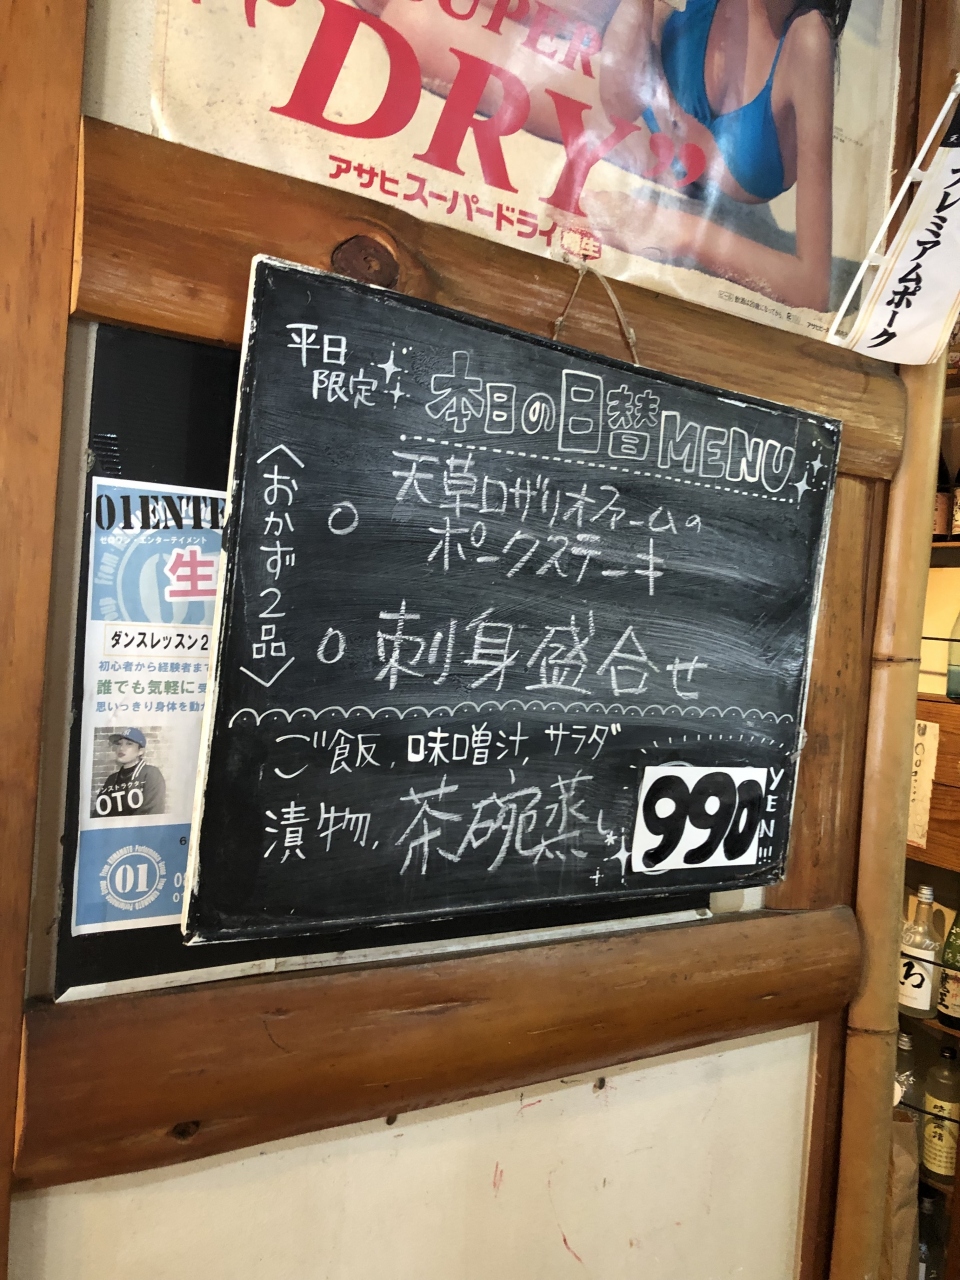 SUPER
"DRY"
アサヒスーパードライ
プレミアムポーク
平日
限定
本日の日替MENU
〈おかず2品〉
○ 天草ロザリオファームの
ポークステーキ
○ 刺身盛合せ
ご飯,味噌汁,サラダ
漬物,茶碗蒸し
990
YEN!!!
01ENTE
ゼロワン・エンターテイメント
生
ダンスレッスン2
初心者から経験者まで
誰でも気軽に受
思いっきり身体を動か
OTO
01